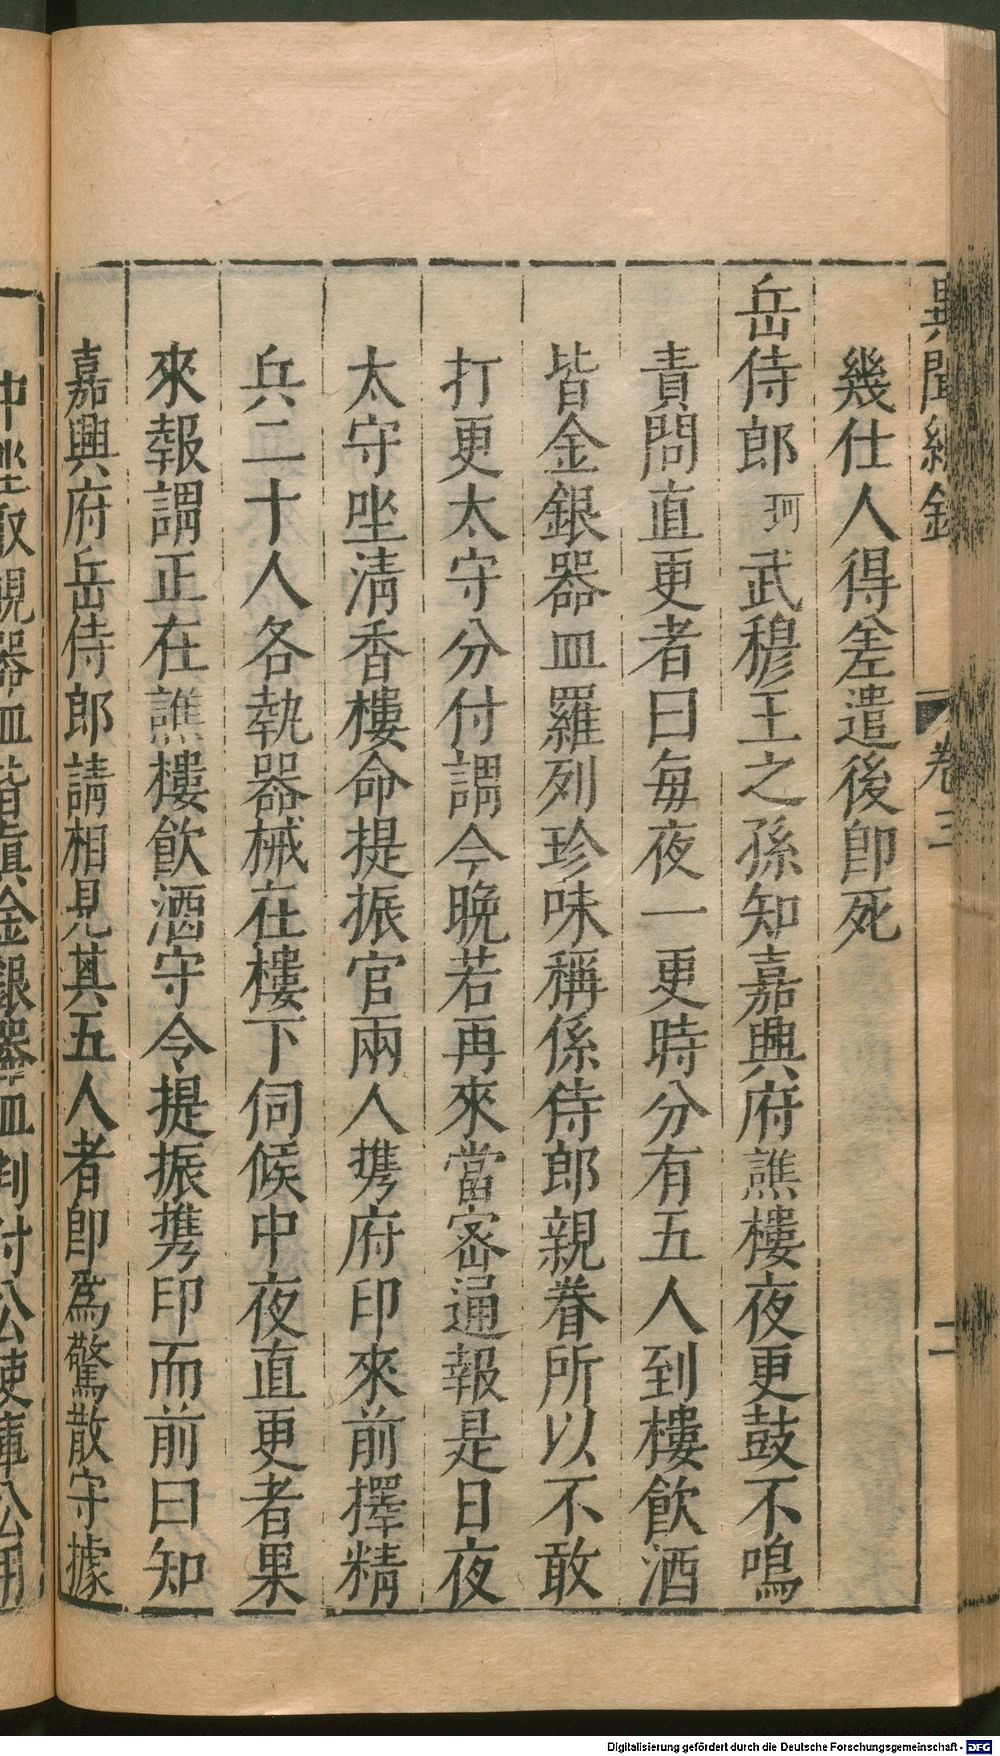 異聞總錄
卷三
二
幾仕人得差遣後卽死
岳侍郎珂武穆王之孫知嘉興府譙樓夜更鼓不鳴
責問直更者曰每夜一更時分有五人到樓飮酒
皆金銀器皿羅列珍味稱係侍郎親眷所以不敢
打更太守分付謂今晩若再來當密通報是日夜
太守坐淸香樓命提振官兩人携府印來前擇精
兵二十人各執器械在樓下伺候中夜直更者果
來報謂正在譙樓飮酒守令提振携印而前曰知
嘉興府岳侍郎請相見其五人者卽爲驚散守據
中坐取視器皿皆眞金銀器皿判付公使庫公用
Digitalisierung gefördert durch die Deutsche Forschungsgemeinschaft - DFG